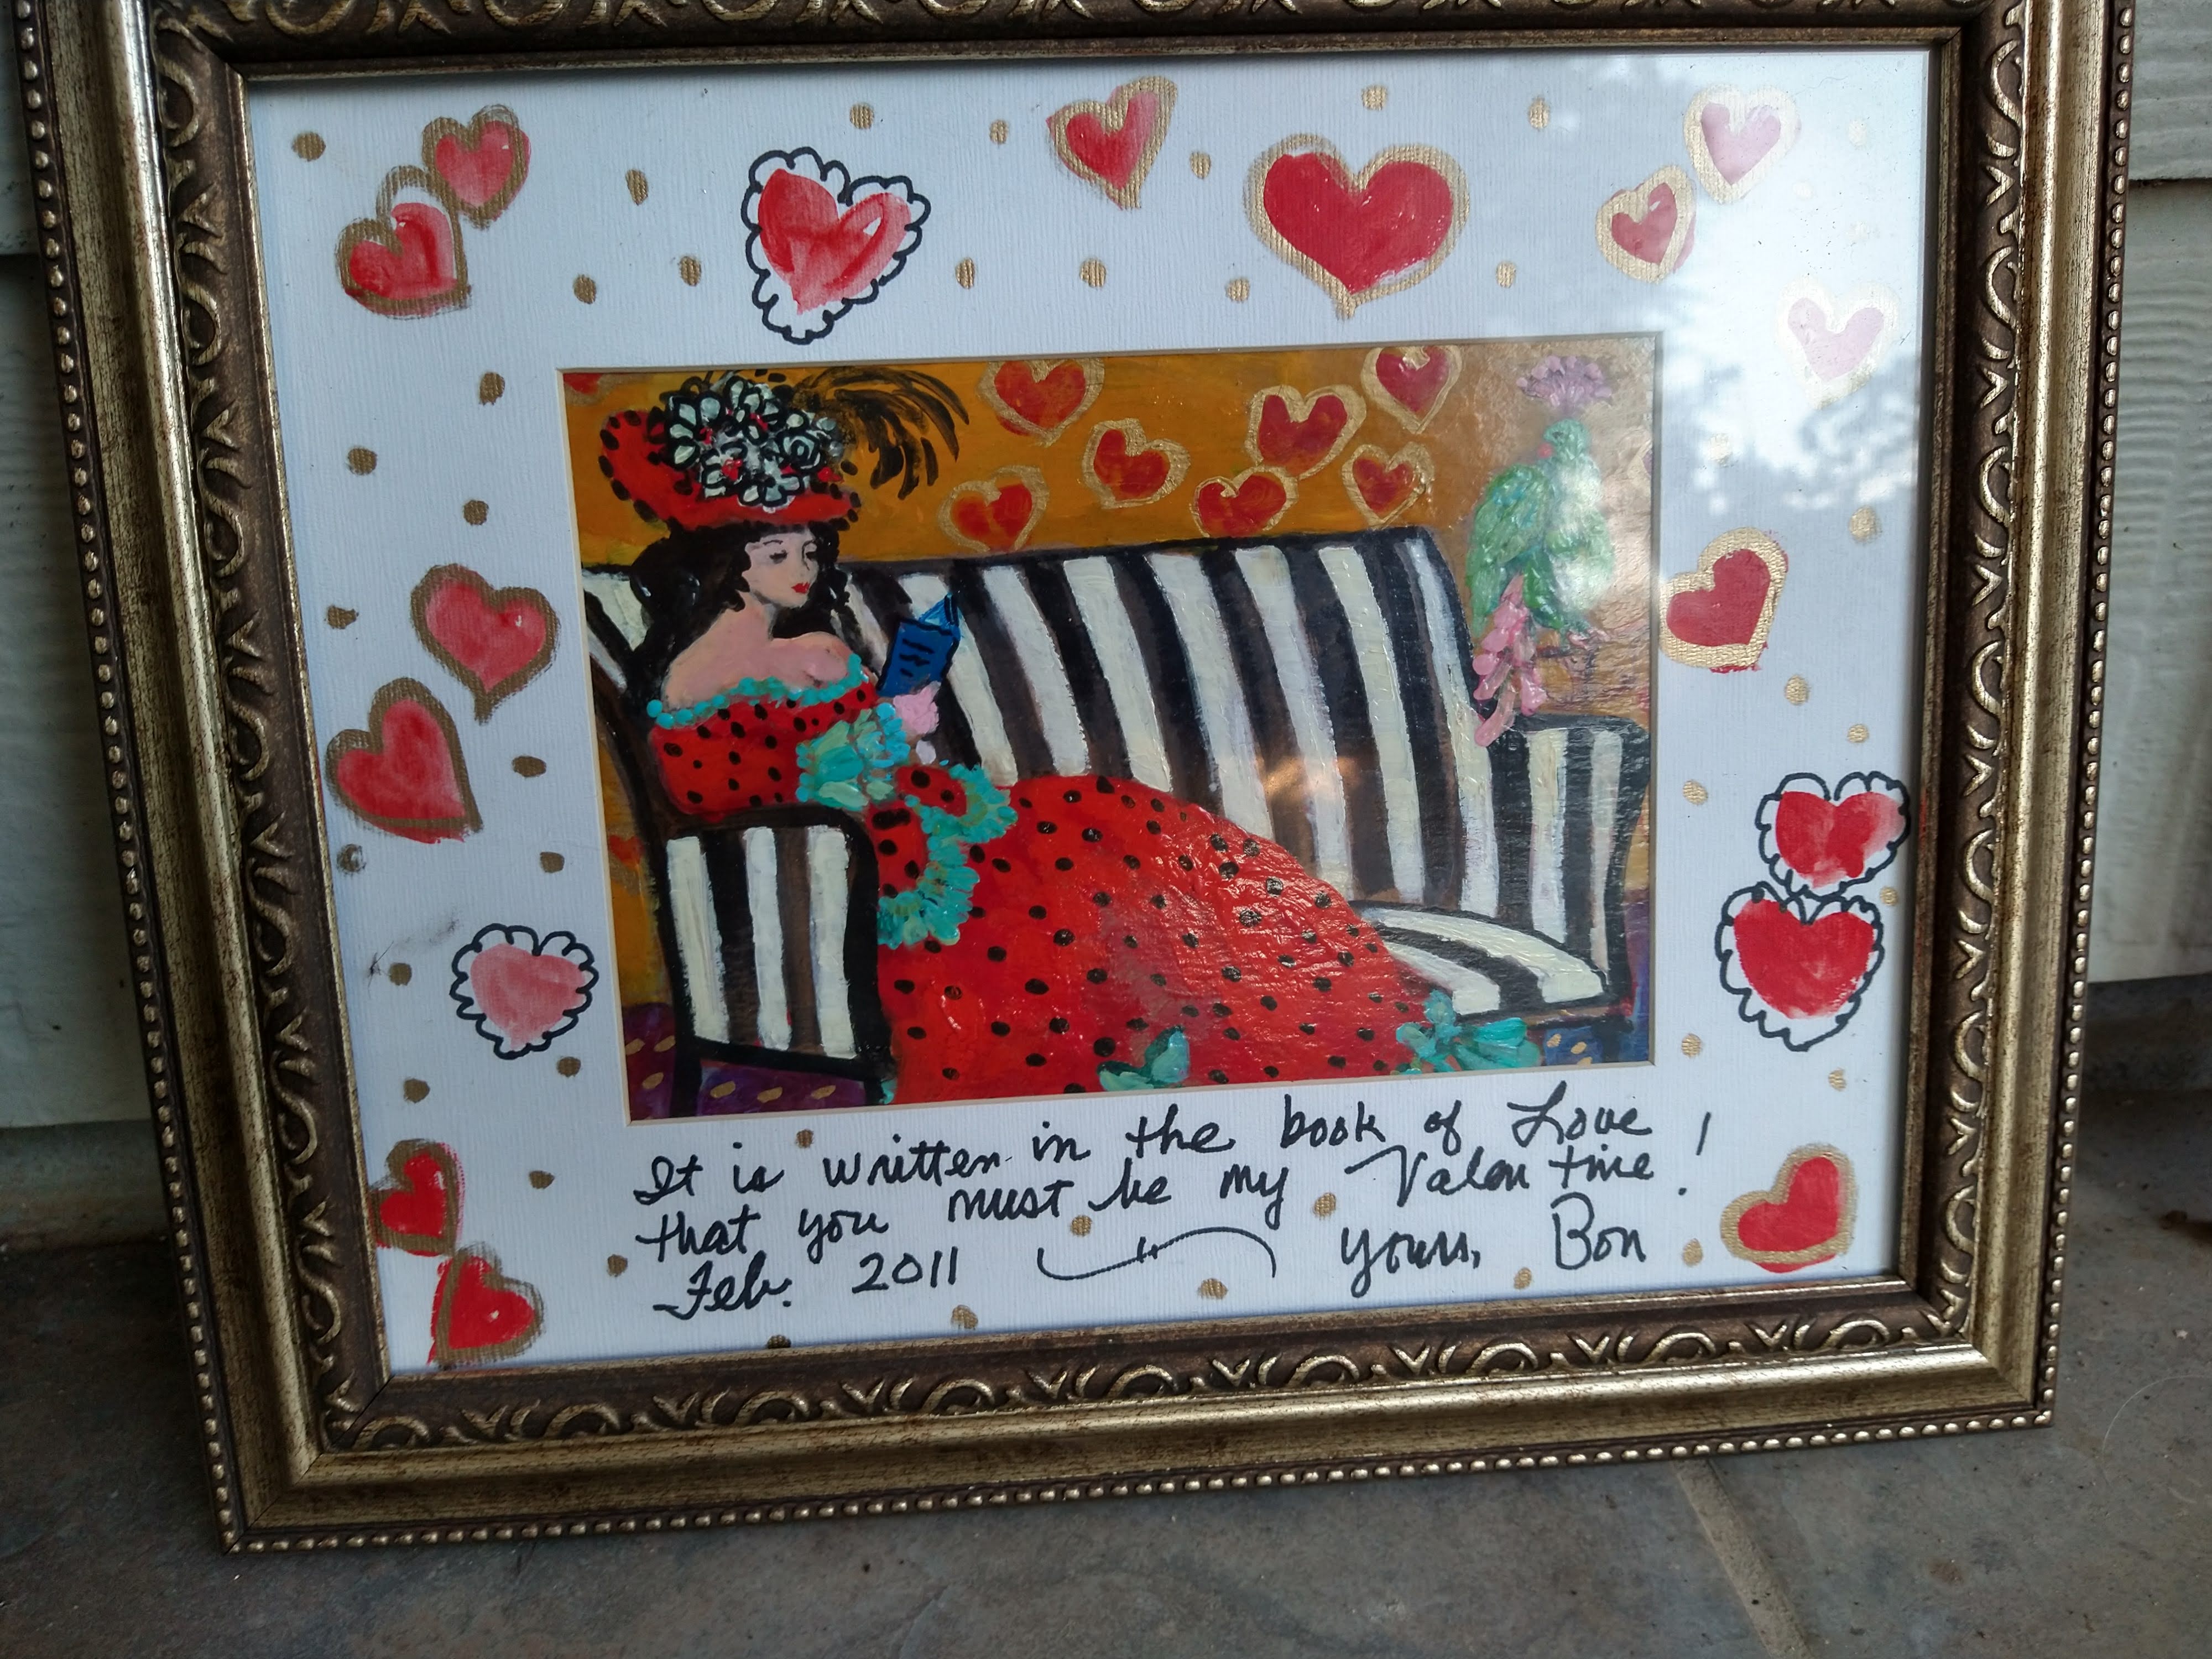 It is written in the book of Love
that you must be my Valentine!
Feb. 2011 yours, Bon